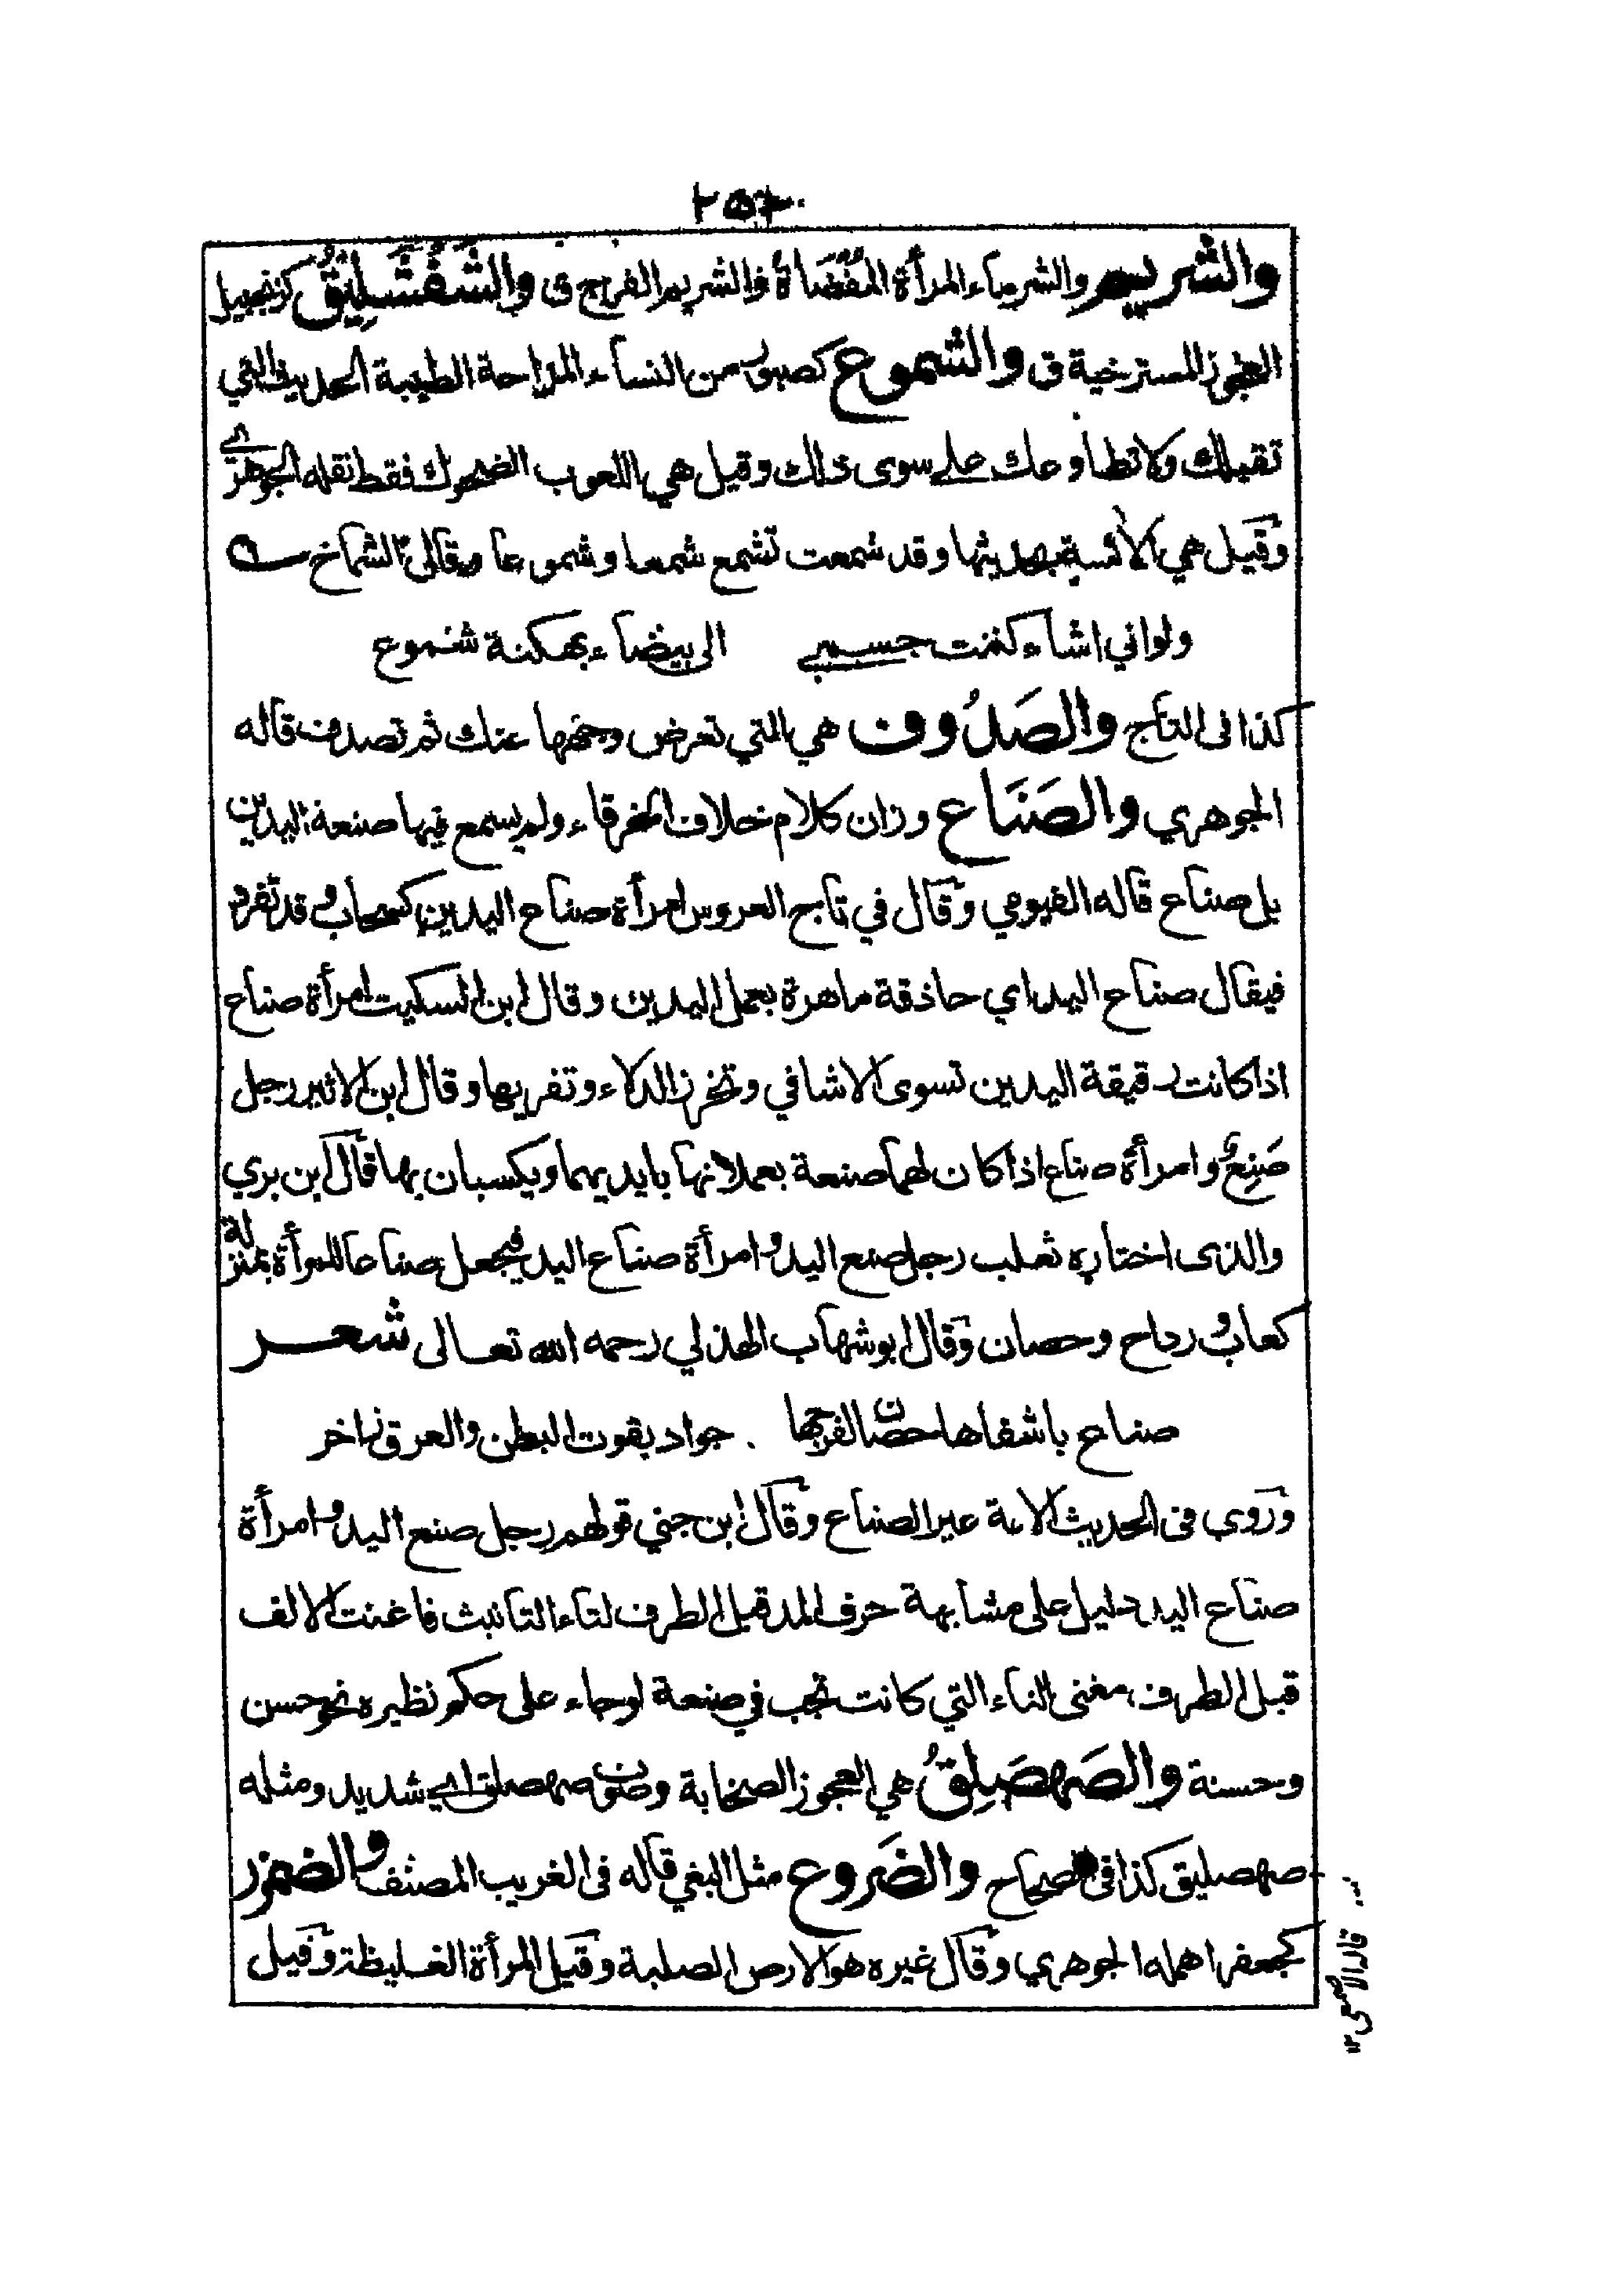 ٢٥٢
والشريم والشرماء المرأة المُفْضَاة والشريم الفرج ق والشَفْشَلِيْقُ كزنجبيل
العجوز المسترخية ق والشموع كصبور من النساء المزاحة الطيبة الحديث التي
تقبلك ولا تطاوعك على سوى ذلك وقيل هي اللعوب الضحوك فقط نقله الجوهري
وقيل هي الآنسة بحديثها وقد شمعت تشمع شمعا وشموعا وقال الشماخ
ولواني اشاء كننت جسمي الى بيضاء بهكنة شموع
كذا فى التاج والصَدُوف هي التي تعرض وجهها عنك ثم تصدف قاله
الجوهري والصَنَاع وزان كلام خلاف الخرقاء ولم يسمع فيها صنعة اليدين
بل صناع قاله الفيومي وقال في تاج العروس امرأة صناع اليدين كسحاب وقد تفرد
فيقال صناع اليد اي حاذقة ماهرة بعمل اليدين وقال ابن السكيت امرأة صناع
اذا كانت رقيقة اليدين تسوى الاشافي وتخرز الدلاء وتفريها وقال ابن الاثير رجل
صَنِعٌ وامرأة صناع اذا كان لهما صنعة يعملانها بايديهما ويكسبان بها قال ابن بري
والذى اختاره ثعلب رجل صنع اليد وامرأة صناع اليد فيجعل صناعا للمرأة بمنزلة
كعاب ورداح وحصان وقال ابو شهاب الهذلي رحمه الله تعالى شعر
صناع باشفاها حصان الفرجها . جواد بقوت البطن والعرق زاخر
وروي فى الحديث الامة غير الصناع وقال ابن جني قولهم رجل صنع اليد وامرأة
صناع اليد دليل على مشابهة حرف المد قبل الطرف لتاء التانيث فاغنت الالف
قبل الطرف مغنى التاء التي كانت تجب في صنعة لو جاء على حكم نظيره نحو حسن
وحسنة والصَهصَلِقُ هي العجوز الصخابة وصوت صهصلق اي شديد ومثله
صهصليق كذا فى الصحاح والضَروع مثل البغي قاله فى الغريب المصنف والضمزر
كجعفر اهمله الجوهري وقال غيره هو الارض الصلبة وقيل المرأة الغليظة وقيل
قاله الاصمعي ١٢